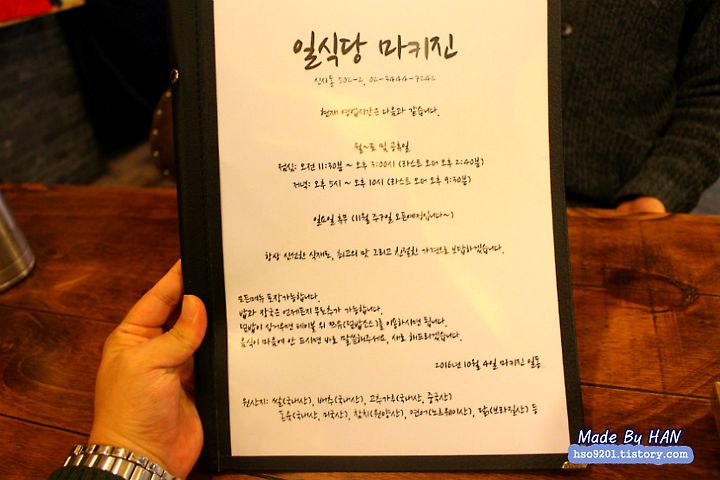 일식당 마키진
신사동 502-2, 02-3444-7242
현재 영업시간은 다음과 같습니다.
월~토 및 공휴일
점심: 오전 11:30분 ~ 오후 3:00시 (라스트 오더 오후 2:40분)
저녁: 오후 5시 ~ 오후 10시 (라스트 오더 오후 9:30분)
일요일 휴무 (11월 주7일 오픈예정입니다~)
항상 신선한 식재료, 최고의 맛 그리고 친절한 가격으로 보답하겠습니다.
모든메뉴 포장가능합니다.
밥과 장국은 언제든지 무료추가 가능합니다.
덮밥이 싱거우면 테이블 위 쯔유(덮밥소스)를 이용하시면 됩니다.
음식이 마음에 안 드시면 바로 말씀해주세요, 새로 해드리겠습니다.
2016년 10월 4일 마키진 일동
원산지: 쌀(국내산), 배추(국내산), 고추가루(국내산, 중국산)
돈육(국내산, 미국산), 참치(원양산), 연어(노르웨이산), 닭(브라질산) 등
Made By HAN
hso9201.tistory.com